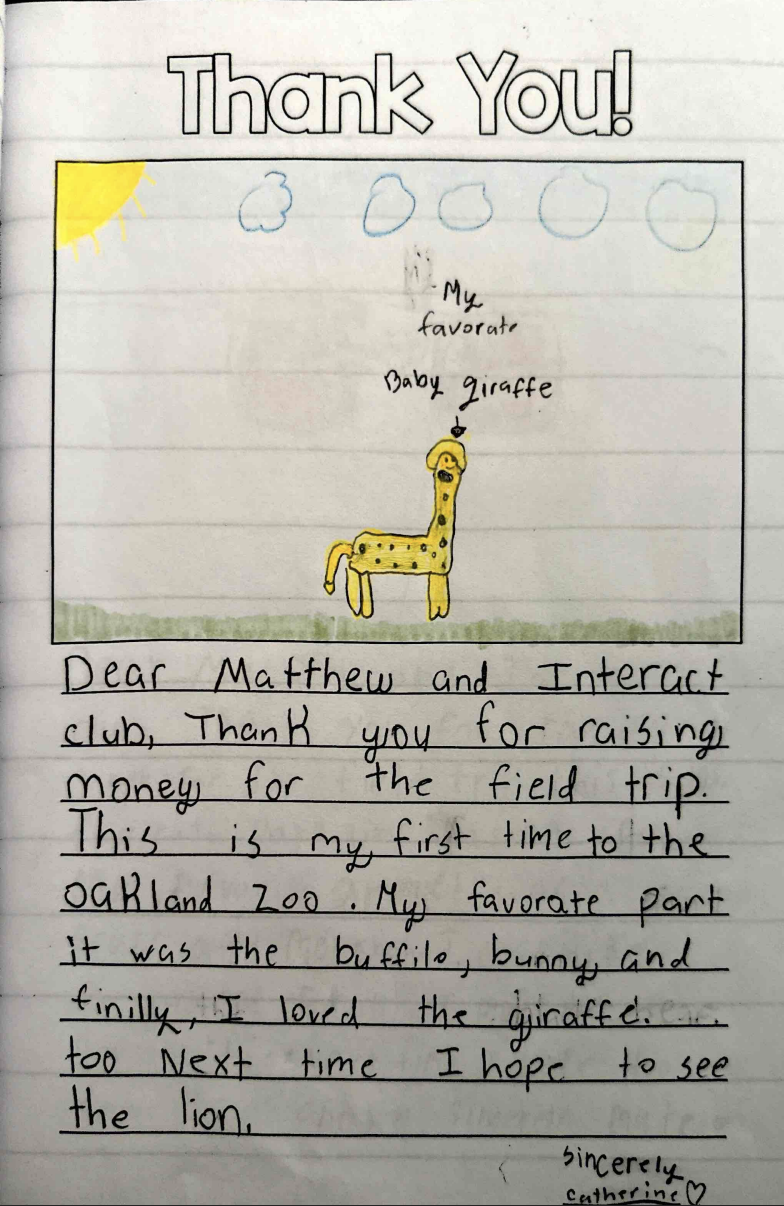 Thank You!
My
favorate
Baby giraffe
Dear Matthew and Interact
club, Thank you for raising
money for the field trip.
This is my first time to the
oakland Zoo. My favorate part
it was the buffilo, bunny, and
finilly, I loved the giraffe.
too Next time I hope to see
the lion.
sincerely
catherine♡